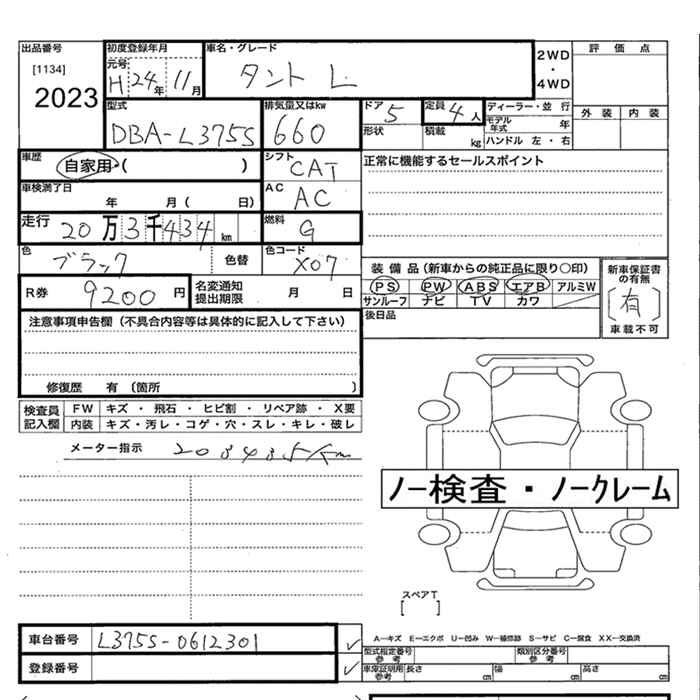 出品番号 初度登録年月 車名・グレード 2WD・4WD 評価点
[1134] 元号 H 24年 11月 タント L
2023
型式 排気量又はkw ドア 5 定員 4人 ディーラー・並行 外装 内装
DBA-L375S 660 形状 積載 kg モデル年式 年
ハンドル 左・右
車歴 自家用・( ) シフト CAT 正常に機能するセールスポイント
車検満了日 年 月( 日) AC AC
走行 20万3千434km 燃料 G
色 ブラック 色替 色コード X07
装備品(新車からの純正品に限り○印) 新車保証書の有無
R券 9200円 名変通知提出期限 月 日 PS PW ABS エアB アルミW [有]
サンルーフ ナビ TV カワ 車載不可
注意事項申告欄(不具合内容等は具体的に記入して下さい) 後日品
修復歴 有(箇所 )
検査員記入欄 FW キズ・飛石・ヒビ割・リペア跡・X要
内装 キズ・汚レ・コゲ・穴・スレ・キレ・破レ
メーター指示 203485km
ノー検査・ノークレーム
スペアT
[ ]
車台番号 L375S-0612301 ✓ A―キズ E―エクボ U―凹み W―補修跡 S―サビ C―腐食 XX―交換済
型式指定番号参考 類別区分番号参考
登録番号 ✓ 車庫証明用参考 長さ cm 幅 cm 高さ cm